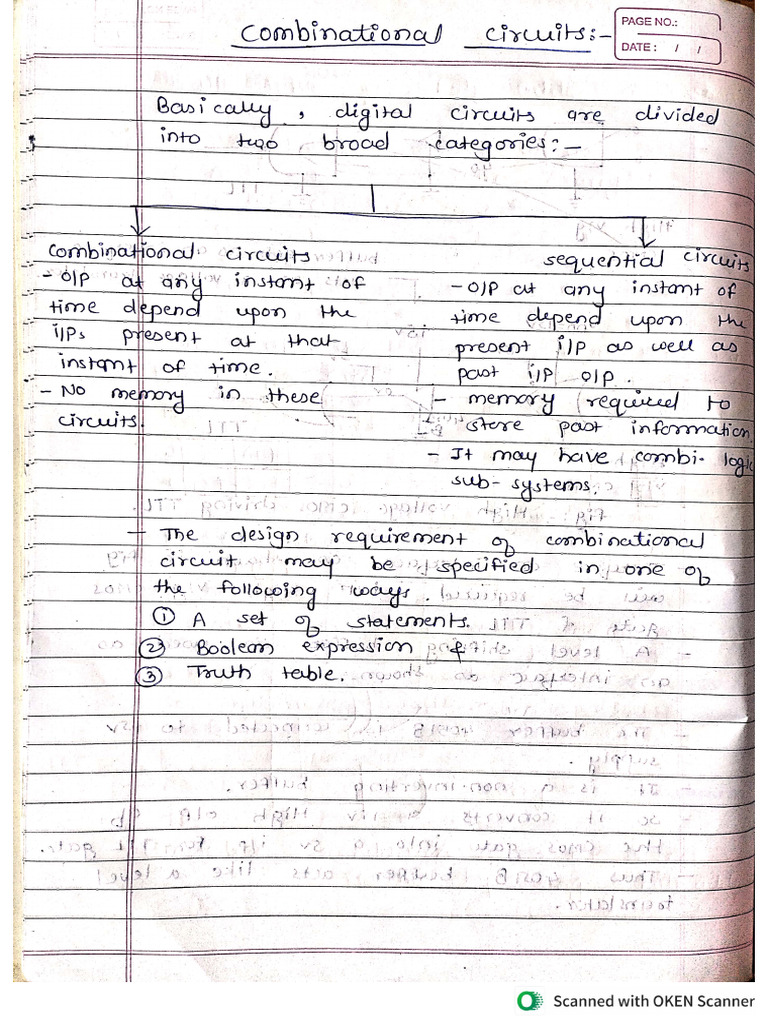 Combinational Circuits:-
PAGE NO.:
DATE: / /
Basically, digital circuits are divided
into two broad categories:-
combinational circuits
- O/P at any instant of
time depend upon the
i/Ps present at that
instant of time.
- No memory in these
circuits.
sequential circuits
- O/P at any instant of
time depend upon the
present i/p as well as
past i/p o/p.
- memory required to
store past information
- It may have combi. logic
sub-systems.
- The design requirement of combinational
circuit may be specified in one of
the following ways.
① A set of statements.
② Boolean expression &
③ Truth table.
Scanned with OKEN Scanner